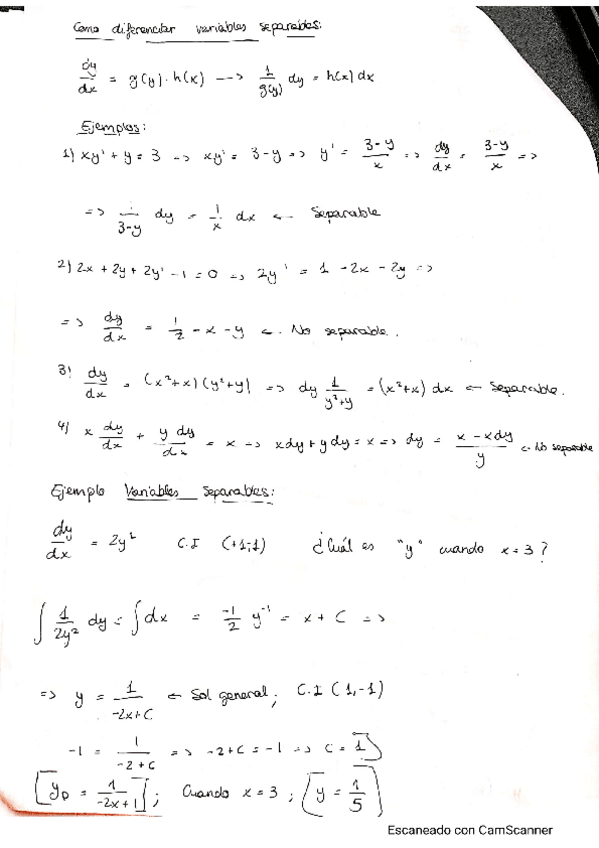 Como diferenciar variables separables:
dy/dx = g(y) · h(x) --> 1/g(y) dy = h(x) dx
Ejemplos:
1) xy' + y = 3 -> xy' = 3 - y => y' = 3-y/x => dy/dx = 3-y/x =>
=> 1/3-y dy = 1/x dx <- Separable
2) 2x + 2y + 2y' - 1 = 0 => 2y' = 1 - 2x - 2y =>
=> dy/dx = 1/2 - x - y <- No separable.
3) dy/dx = (x²+x)(y²+y) => dy 1/y²+y = (x²+x) dx <- Separable.
4) x dy/dx + y dy/dx = x -> xdy + ydy = x => dy = x - xdy/y <- No separable
Ejemplo Variables Separables:
dy/dx = 2y² C.I (+1,-1) ¿Cuál es "y" cuando x = 3?
∫ 1/2y² dy = ∫ dx = -1/2 y⁻¹ = x + C =>
=> y = 1/-2x+C <- Sol general; C.I (1,-1)
-1 = 1/-2+C => -2+C = -1 => C = 1
yp = 1/-2x+1; Cuando x = 3; y = 1/5
Escaneado con CamScanner